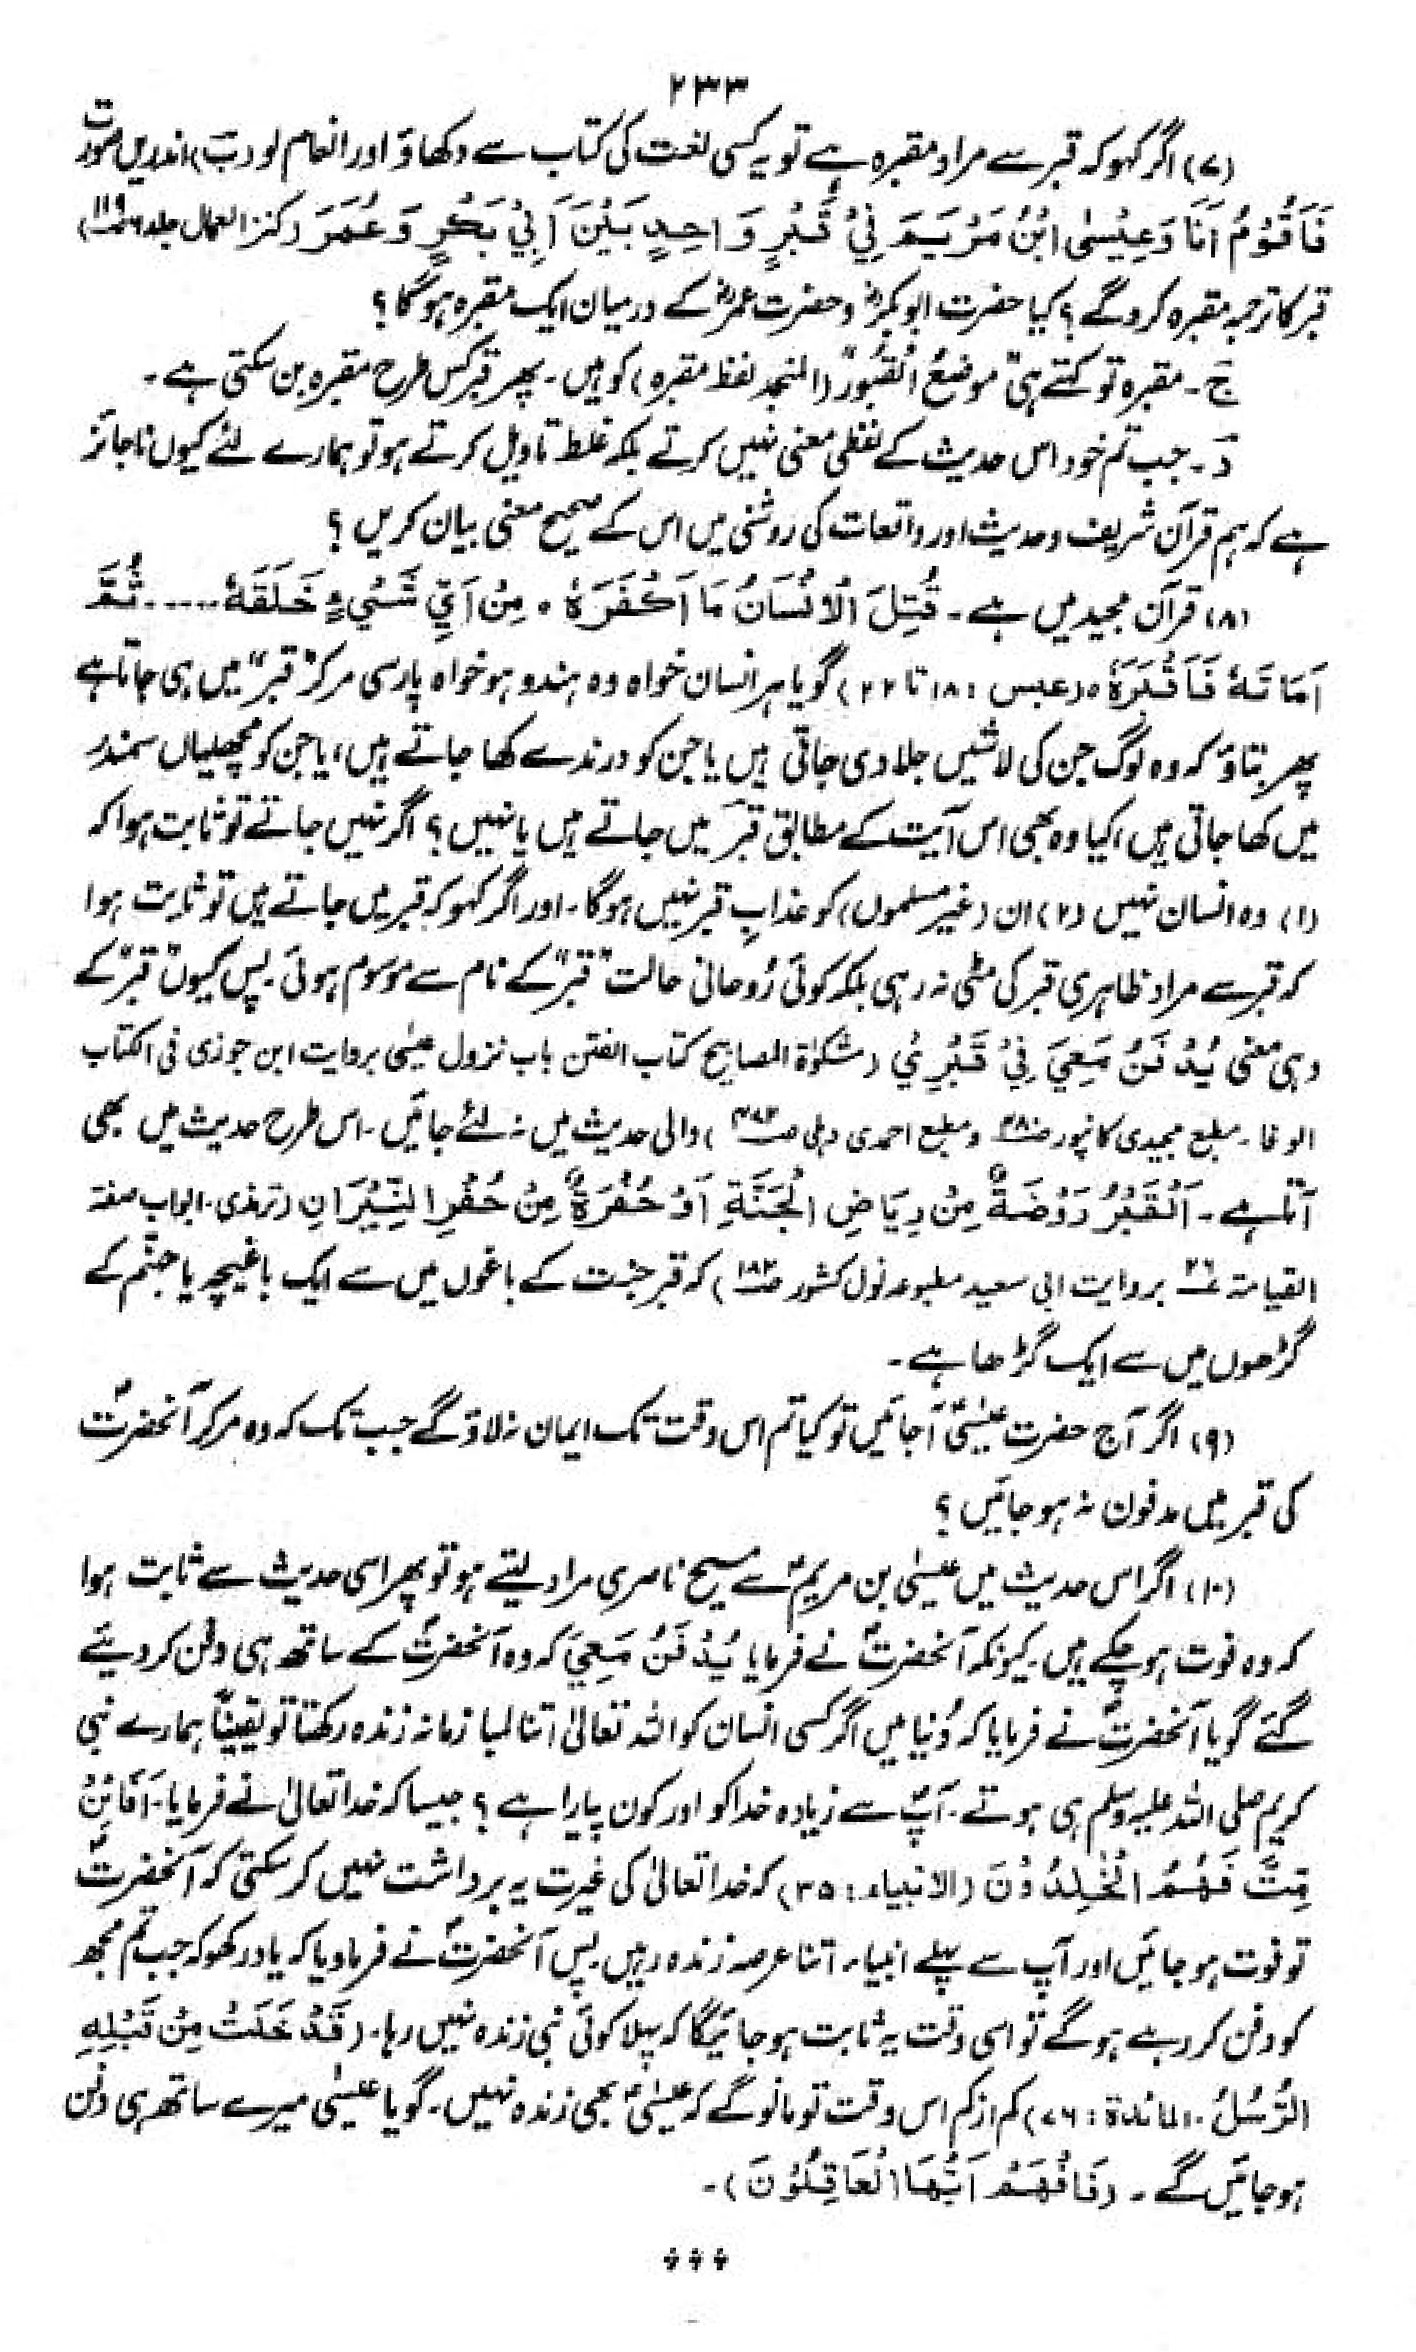 ۲۳۳
(۷) اگر کہو کہ قبر سے مراد مقبرہ ہے تو یہ کسی لغت کی کتاب سے دکھاؤ اور انعام لو ربؔ) اندریں صورت
فَاَقُوْمُ اَنَا وَعِیْسٰی ابْنُ مَرْیَمَ فِیْ قَبْرٍ وَاحِدٍ بَیْنَ اَبِیْ بَکْرٍ وَعُمَرَ (کنز العمال جلد ۶ ص۱۱۹)
قبر کا ترجمہ مقبرہ کرو گے؟ کیا حضرت ابوبکرؓ و حضرت عمرؓ کے درمیان ایک مقبرہ ہو گا؟
جؔ۔ مقبرہ تو کہتے ہی "موضعُ الْقُبُوْر" (المنجد لفظ مقبرہ) کو ہیں۔ پھر قبر کس طرح مقبرہ بن سکتی ہے۔
دؔ۔ جب تم خود اس حدیث کے لفظی معنی نہیں کرتے بلکہ غلط تاویل کرتے ہو تو ہمارے لئے کیوں ناجائز
ہے کہ ہم قرآن شریف و حدیث اور واقعات کی روشنی میں اس کے صحیح معنی بیان کریں؟
(۸) قرآن مجید میں ہے۔ قُتِلَ الْاِنْسَانُ مَا اَکْفَرَہٗ ۰ مِنْ اَیِّ شَیْءٍ خَلَقَہٗ ..... ثُمَّ
اَمَاتَہٗ فَاَقْبَرَہٗ ۰ (عبس : ۱۸ تا ۲۲) گویا ہر انسان خواہ وہ ہندو ہو خواہ پارسی مر کر "قبر" میں ہی جاتا ہے
پھر بتاؤ کہ وہ لوگ جن کی لاشیں جلا دی جاتی ہیں یا جن کو درندے کھا جاتے ہیں، یا جن کو مچھلیاں سمندر
میں کھا جاتی ہیں، کیا وہ بھی اس آیت کے مطابق قبر میں جاتے ہیں یا نہیں؟ اگر نہیں جاتے تو ثابت ہوا کہ
(۱) وہ انسان نہیں (۲) ان (غیر مسلموں) کو عذابِ قبر نہیں ہو گا۔ اور اگر کہو کہ قبر میں جاتے ہیں تو ثابت ہوا
کہ قبر سے مراد ظاہری قبر کی مٹی نہ رہی بلکہ کوئی رُوحانی حالت "قبر" کے نام سے موسوم ہوئی۔ پس کیوں "قبر" کے
وہی معنی یُدْفَنُ مَعِیَ فِیْ قَبْرِیْ (مشکوٰۃ المصابیح کتاب الفتن باب نزول عیسٰی بروایت ابن جوزی فی الکتاب
الوفا۔ مطبع مجیدی کانپور ص۴۸۰ و مطبع احمدی دہلی ص۴۸۲) والی حدیث میں نہ لئے جائیں۔ اس طرح حدیث میں بھی
آتا ہے۔ اَلْقَبْرُ رَوْضَۃٌ مِنْ رِیَاضِ الْجَنَّۃِ اَوْ حُفْرَۃٌ مِنْ حُفَرِ النِّیْرَانِ (ترمذی۔ ابواب صفۃ
القیامۃ ۲۶ بروایت ابی سعید مطبوعہ نول کشور ص۱۸۲) کہ قبر جنت کے باغوں میں سے ایک باغیچہ یا جہنّم کے
گڑھوں میں سے ایک گڑھا ہے۔
(۹) اگر آج حضرت عیسٰیؑ آ جائیں تو کیا تم اس وقت تک ایمان نہ لاؤ گے جب تک کہ وہ مر کر آنحضرتؐ
کی قبر میں مدفون نہ ہو جائیں؟
(۱۰) اگر اس حدیث میں عیسٰی بن مریمؑ سے مسیح ناصری مراد لیتے ہو تو پھر اسی حدیث سے ثابت ہوا
کہ وہ فوت ہو چکے ہیں۔ کیونکہ آنحضرتؐ نے فرمایا یُدْفَنُ مَعِیَ کہ وہ آنحضرتؐ کے ساتھ ہی دفن کر دیئے
گئے گویا آنحضرتؐ نے فرمایا کہ دُنیا میں اگر کسی انسان کو اللہ تعالیٰ اتنا لمبا زمانہ زندہ رکھتا تو یقیناً ہمارے نبی
کریم صلی اللہ علیہ وسلم ہی ہوتے۔ آپؐ سے زیادہ خدا کو اور کون پیارا ہے؟ جیسا کہ خدا تعالیٰ نے فرمایا۔ اَفَائِنْ
مِّتَّ فَہُمُ الْخٰلِدُوْنَ (الانبیاء : ۳۵) کہ خدا تعالیٰ کی غیرت یہ برداشت نہیں کر سکتی کہ آنحضرتؐ
تو فوت ہو جائیں اور آپ سے پہلے انبیاء اتنا عرصہ زندہ رہیں۔ پس آنحضرتؐ نے فرما دیا کہ یاد رکھو کہ جب تم مجھ
کو دفن کر رہے ہو گے تو اسی وقت یہ ثابت ہو جائیگا کہ پہلا کوئی نبی زندہ نہیں رہا۔ (قَدْ خَلَتْ مِنْ قَبْلِہِ
الرُّسُلُ۔ المائدۃ : ۷۶) کم از کم اس وقت تو مانو گے کہ عیسٰیؑ بھی زندہ نہیں۔ گویا عیسٰی میرے ساتھ ہی دفن
ہو جائیں گے۔ (فَافْہَمْ اَیُّہَا الْعَاقِلُوْنَ)۔